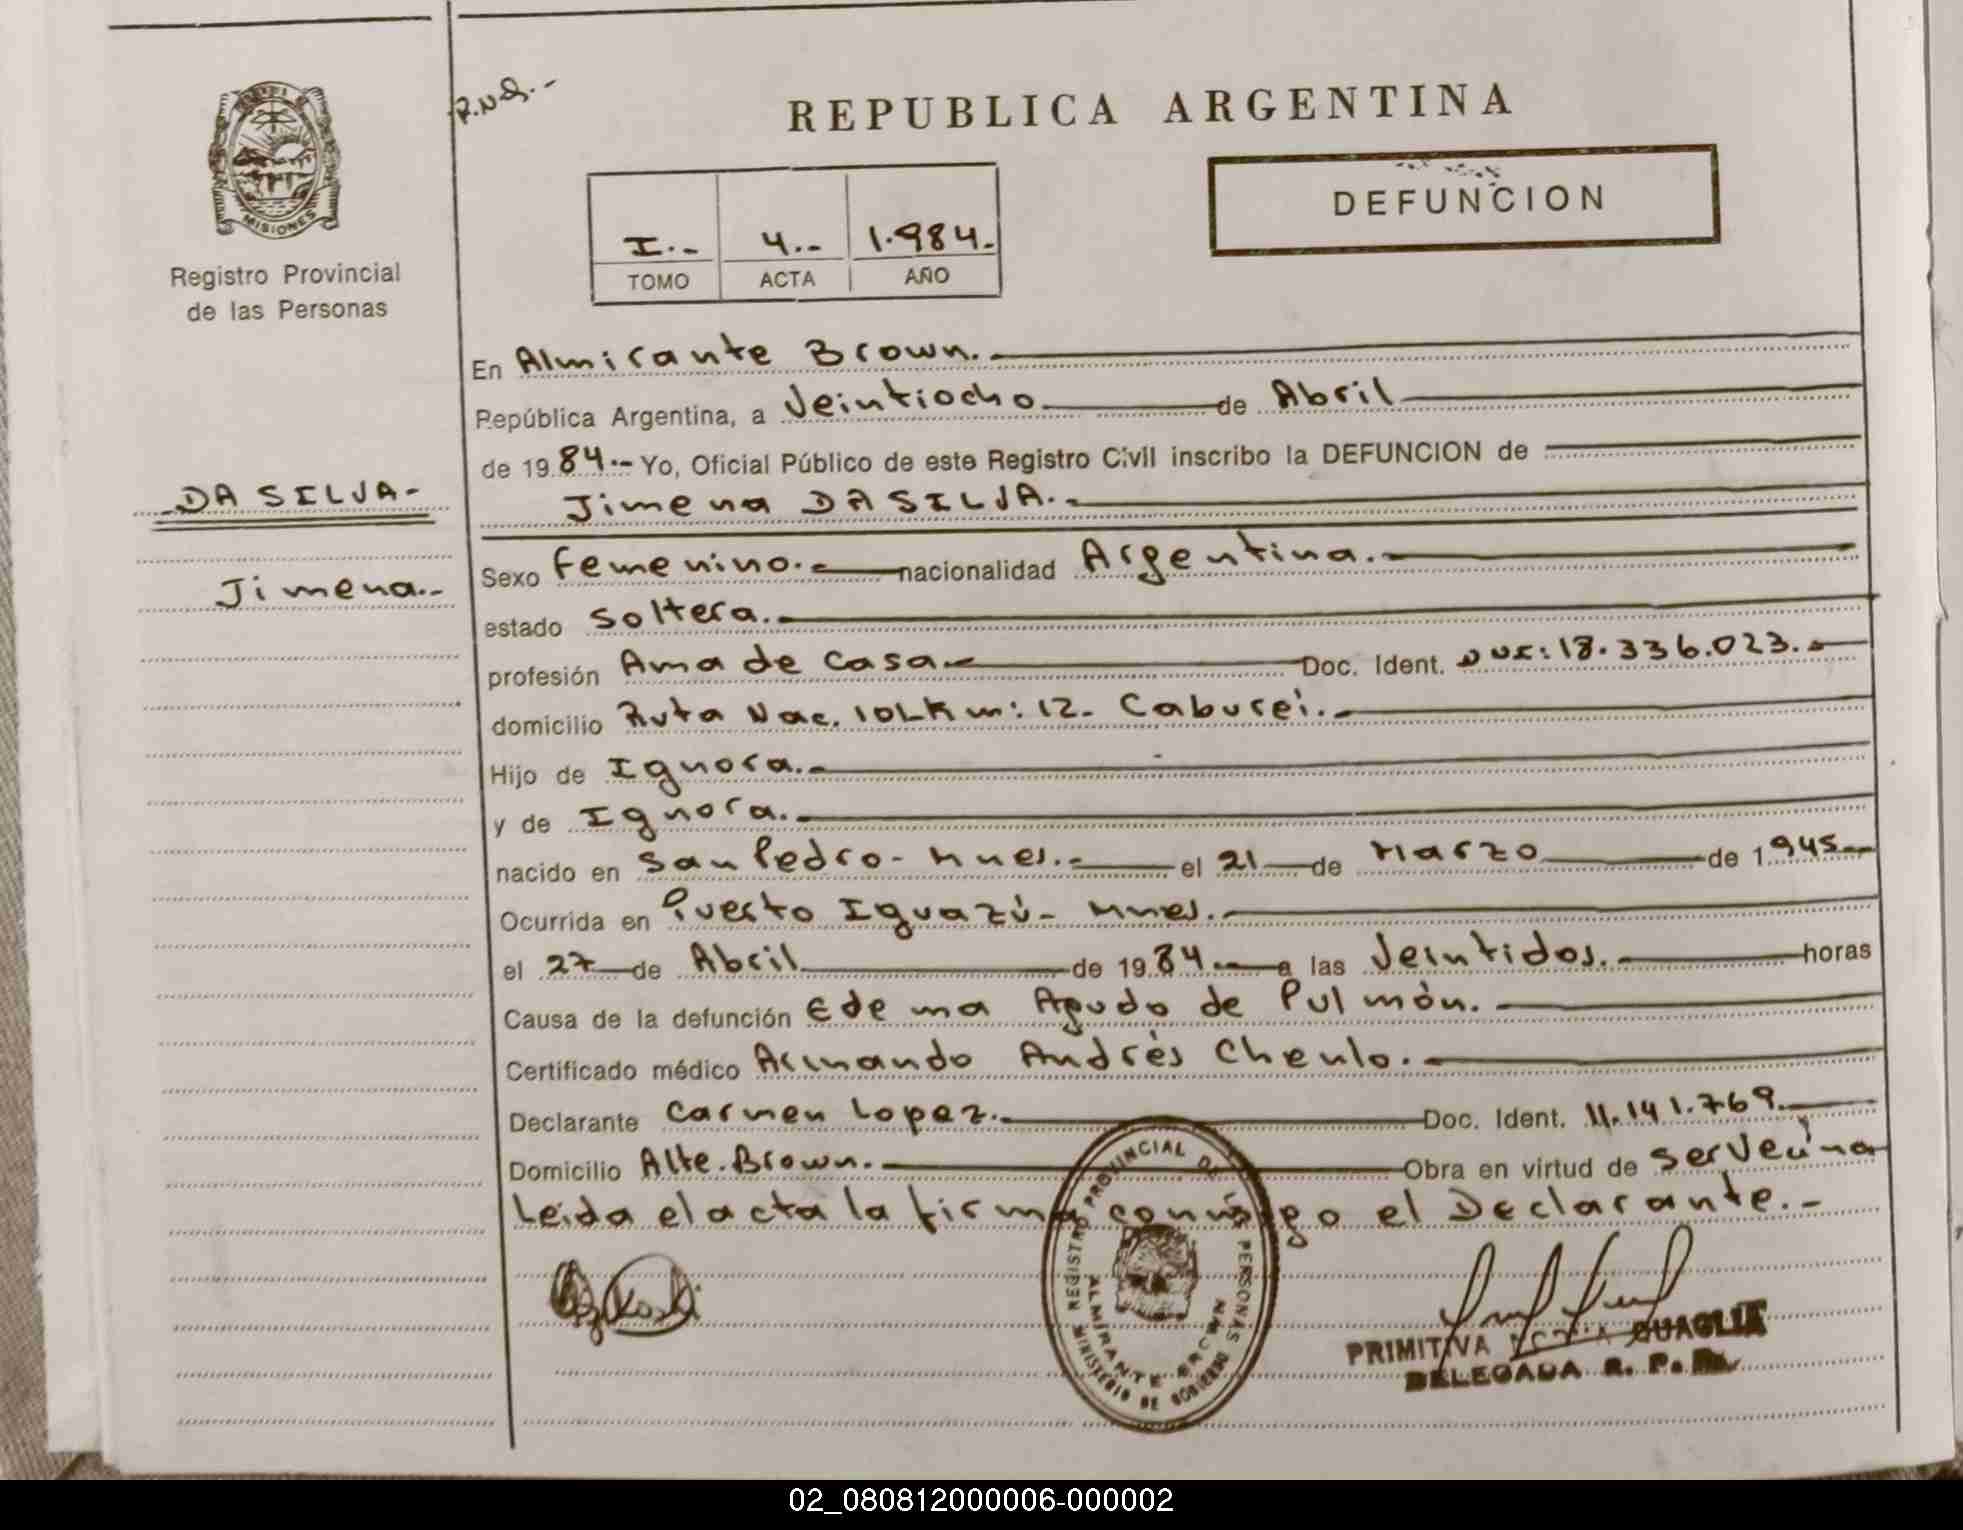 R.N.A.-
REPUBLICA ARGENTINA
MISIONES
Registro Provincial
de las Personas
I.- 4.- 1.984.-
TOMO ACTA AÑO
DEFUNCION
En Almirante Brown.-
República Argentina, a Veintiocho de Abril
de 19 84.- Yo, Oficial Público de este Registro Civil inscribo la DEFUNCION de
DA SILVA-
Jimena DA SILVA.-
Jimena.-
Sexo Femenino.- nacionalidad Argentina.-
estado Soltera.-
profesión Ama de Casa- Doc. Ident. DNI: 18.336.023.-
domicilio Ruta Nac. 101 Km: 12- Caburei.-
Hijo de Ignora.-
y de Ignora.-
nacido en San Pedro- Mnes.- el 21 de Marzo de 1.945-
Ocurrida en Puerto Iguazú- Mnes.-
el 27 de Abril de 19 84.- a las Veintidos.- horas
Causa de la defunción Edema Agudo de Pulmón.-
Certificado médico Armando Andrés Chenlo.-
Declarante Carmen Lopez.- Doc. Ident. 11.141.769.-
Domicilio Alte. Brown.- Obra en virtud de
Leida el acta la firma conmigo el Declarante.-
REGISTRO PROVINCIAL DE PERSONAS
ALMIRANTE BROWN
MINISTERIO DE GOBIERNO
PRIMITIVA QUAGLIA
DELEGADA R. P.
02_080812000006-000002